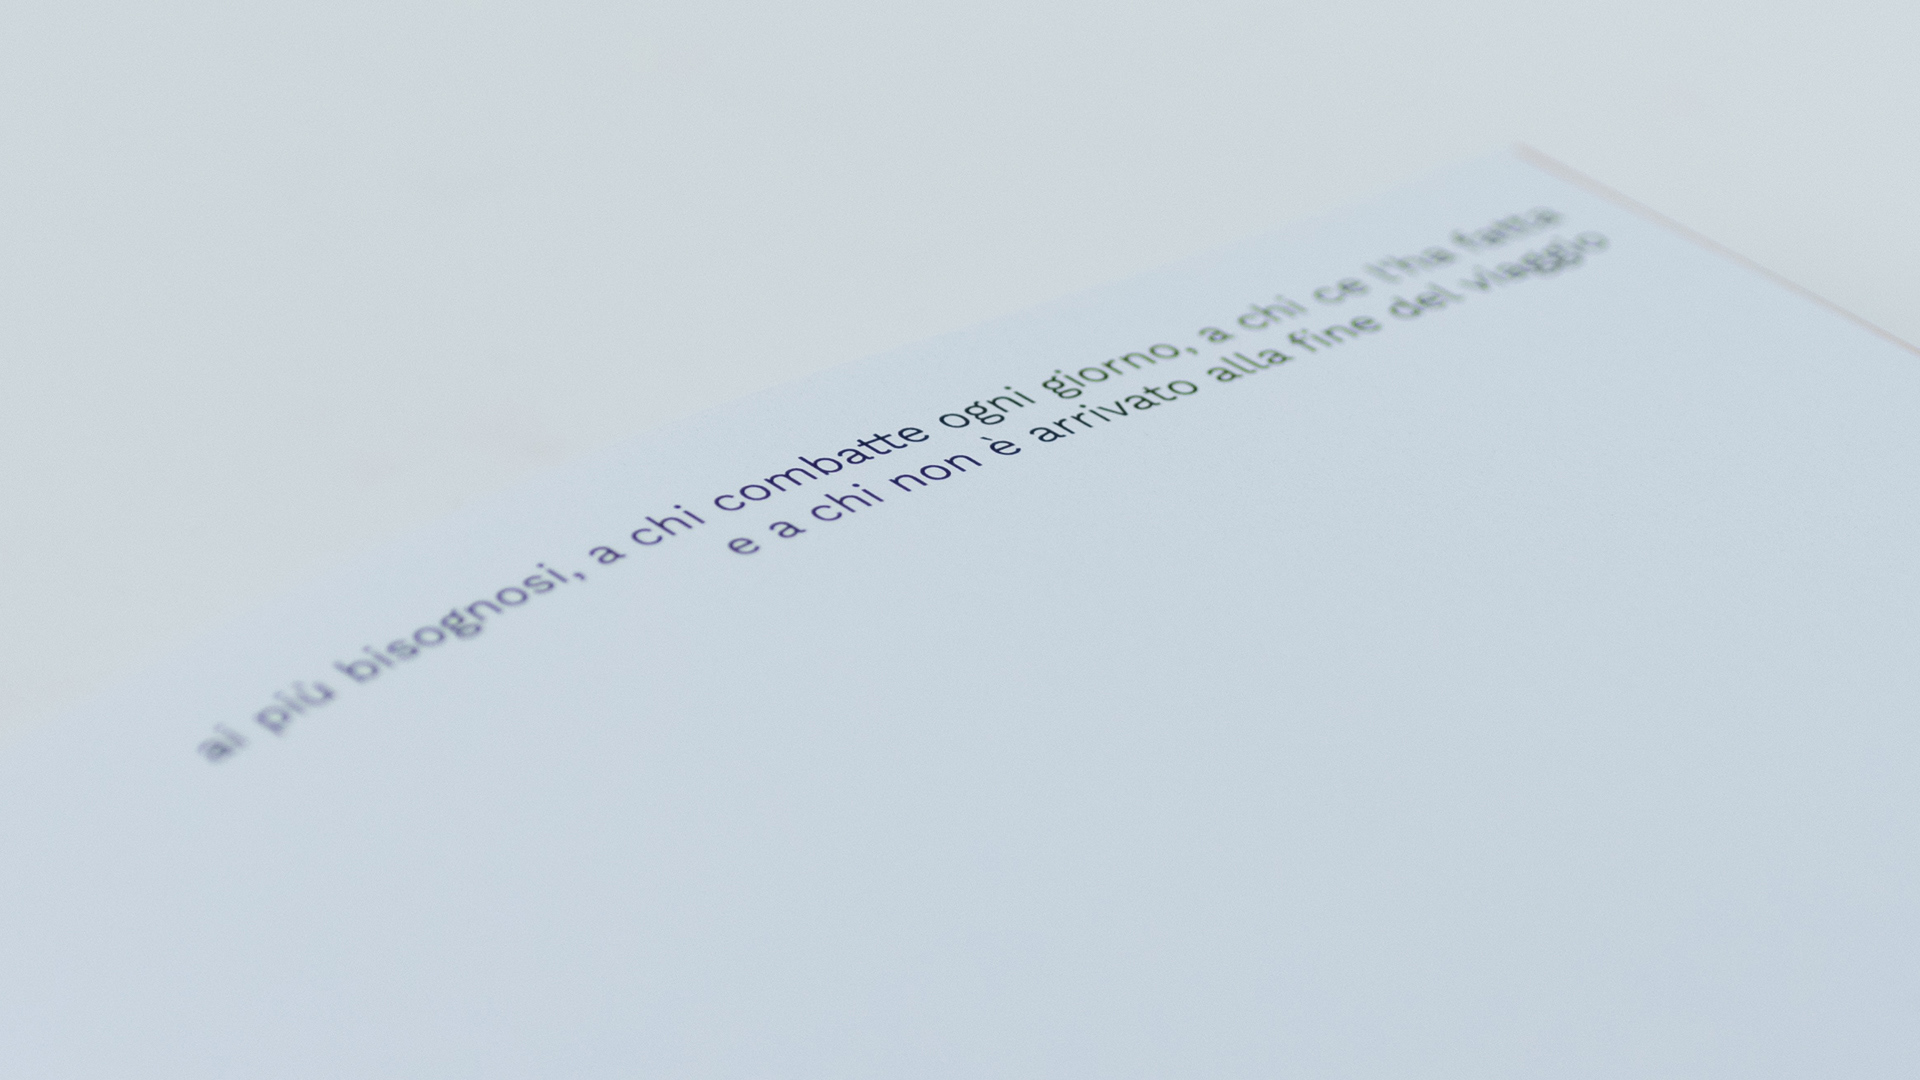 ai più bisognosi, a chi combatte ogni giorno, a chi ce l'ha fatta
e a chi non è arrivato alla fine del viaggio